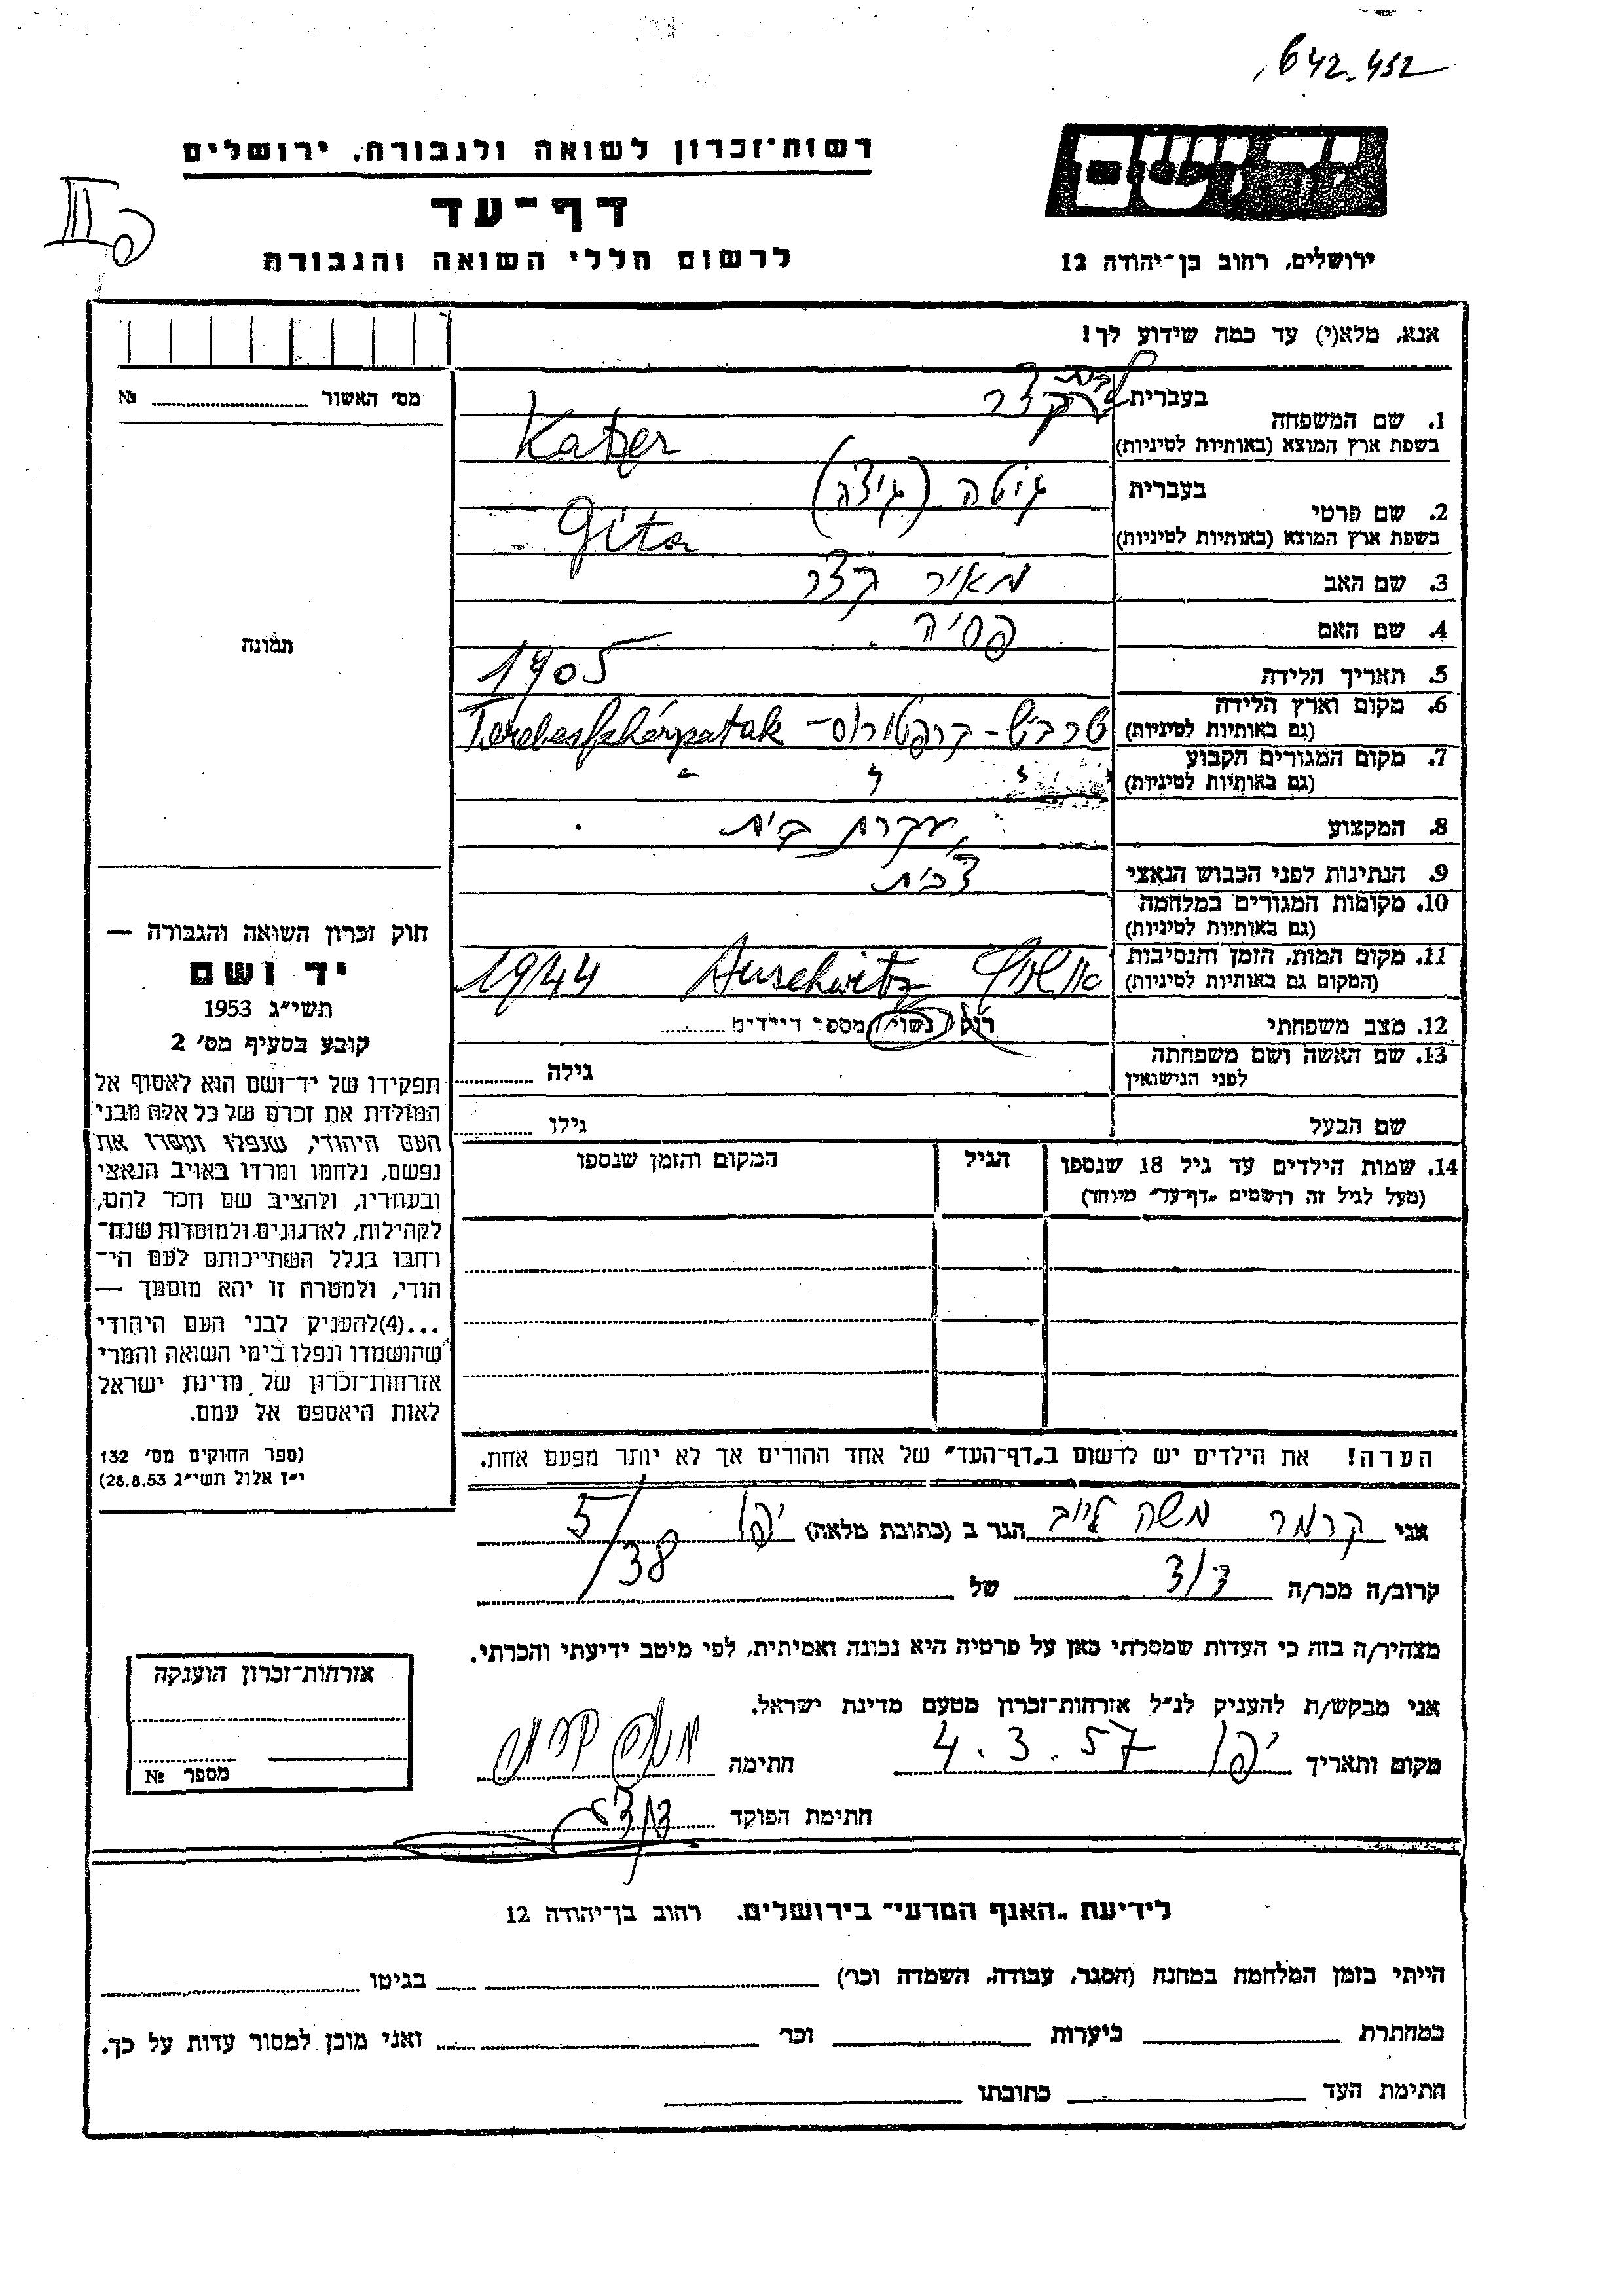 642-432
רשות־זכרון לשואה ולגבורה, ירושלים
דף־עד
לרשום חללי השואה והגבורה
יד ושם
ירושלים, רחוב בן־יהודה 12
אנא, מלא(י) עד כמה שידוע לך!
מס׳ האשור № 
בעברית לבית קצר
1. שם המשפחה
בשפת ארץ המוצא (באותיות לטיניות) Katzer
בעברית גיטה (גיצה)
2. שם פרטי
בשפת ארץ המוצא (באותיות לטיניות) Gita
3. שם האב מאיר קצר
4. שם האם פסיה
5. תאריך הלידה 1905
6. מקום וארץ הלידה
(גם באותיות לטיניות) טרבש - קרפטורוס - Terebesfehérpatak
7. מקום המגורים הקבוע
(גם באותיות לטיניות)
8. המקצוע עקרת בית
9. הנתינות לפני הכבוש הנאצי צ'כית
10. מקומות המגורים במלחמה
(גם באותיות לטיניות)
11. מקום המות, הזמן והנסיבות
(המקום גם באותיות לטיניות) אושויץ Auschwitz 1944
12. מצב משפחתי רוק נשוי/ מספר הילדים
13. שם האשה ושם משפחתה
לפני הנישואין גילה
שם הבעל גילו
14. שמות הילדים עד גיל 18 שנספו
(מעל לגיל זה רושמים „דף־עד״ מיוחד)
הגיל
המקום והזמן שנספו
הערה! את הילדים יש לרשום ב„דף־העד״ של אחד ההורים אך לא יותר מפעם אחת.
תמונה
חוק זכרון השואה והגבורה —
יד ושם
תשי״ג 1953
קובע בסעיף מס׳ 2
תפקידו של יד־ושם הוא לאסוף אל
המולדת את זכרם של כל אלה מבני
העם היהודי, שנפלו ומסרו את
נפשם, נלחמו ומרדו באויב הנאצי
ובעוזריו, ולהציב שם וזכר להם,
לקהילות, לארגונים ולמוסדות שנח־
רחבו בגלל השתייכותם לעם הי־
הודי, ולמטרה זו יהא מוסמך —
...(4)להעניק לבני העם היהודי
שהושמדו ונפלו בימי השואה והמרי
אזרחות־זכרון של מדינת ישראל
לאות היאספם אל עמם.
(ספר החוקים מס׳ 132
י״ז אלול תשי״ג 28.8.53)
אני קרמר משה לייב הגר ב (כתובת מלאה) יפו 5/38
קרוב/ה מכר/ה דוד של
מצהיר/ה בזה כי העדות שמסרתי כאן על פרטיה היא נכונה ואמיתית, לפי מיטב ידיעתי והכרתי.
אני מבקש/ת להעניק לנ״ל אזרחות־זכרון מטעם מדינת ישראל.
מקום ותאריך יפו 4.3.57 חתימה
חתימת הפוקד
אזרחות־זכרון הוענקה
מספר №
לידיעת „האגף המדעי״ בירושלים, רחוב בן־יהודה 12
הייתי בזמן המלחמה במחנה (הסגר, עבודה, השמדה וכו׳) בגיטו
במחתרת ביערות וכו׳ ואני מוכן למסור עדות על כך.
חתימת העד כתובתו